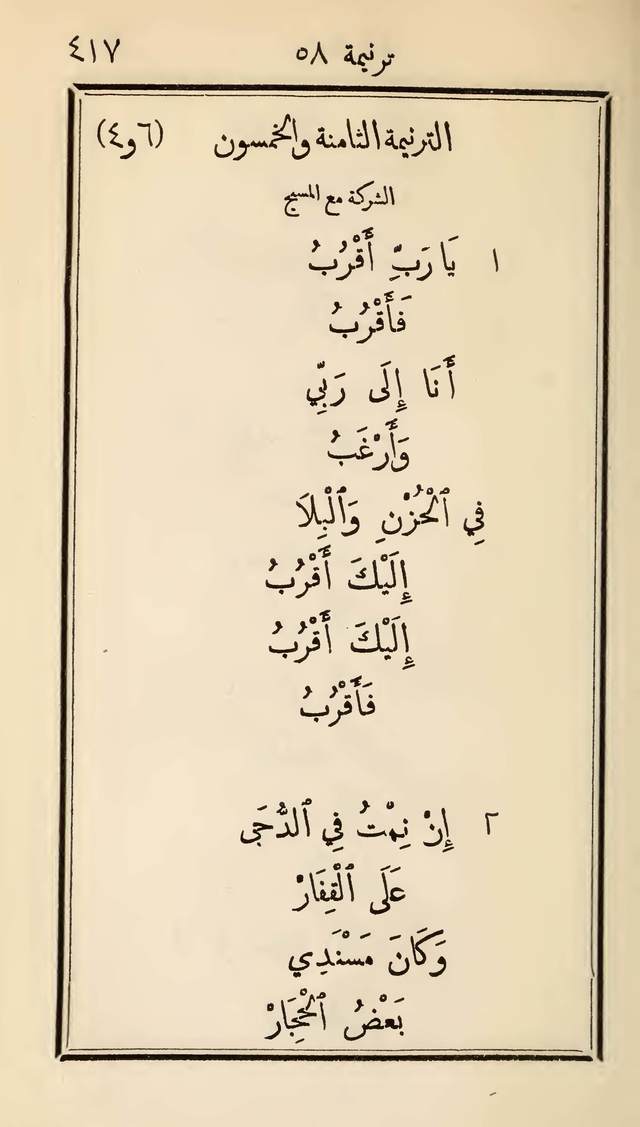 ترنيمة ٥٨ ٤١٧
الترنيمة الثامنة والخمسون (٦ و٤)
الشركة مع المسيح
١ يَا رَبِّ أَقْرُبُ
فَأَقْرُبُ
أَنَا إِلَى رَبِّي
وَأَرْغَبُ
فِي ٱلْحُزْنِ وَٱلْبِلَا
إِلَيْكَ أَقْرُبُ
إِلَيْكَ أَقْرُبُ
فَأَقْرُبُ
٢ إِنْ نِمْتُ فِي ٱلدُّجَى
عَلَى ٱلْقِفَارْ
وَكَانَ مَسْنَدِي
بَعْضُ ٱلْحِجَارْ